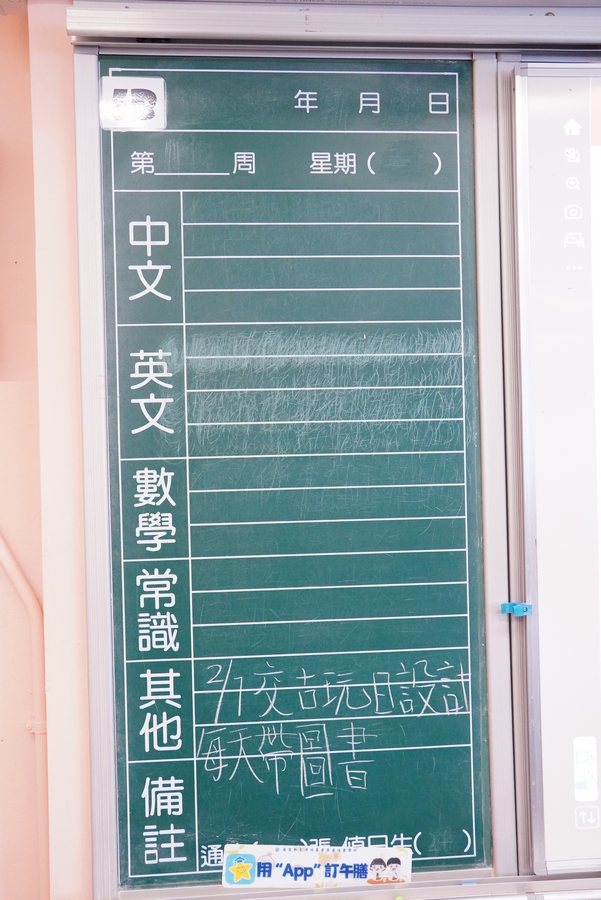 5B
年 月 日
第______周 星期( )
中文
英文
數學
常識
其他
2/7交古玩日設計
每天帶圖書
備註
通 )張 值日生( )
用“App”訂午膳